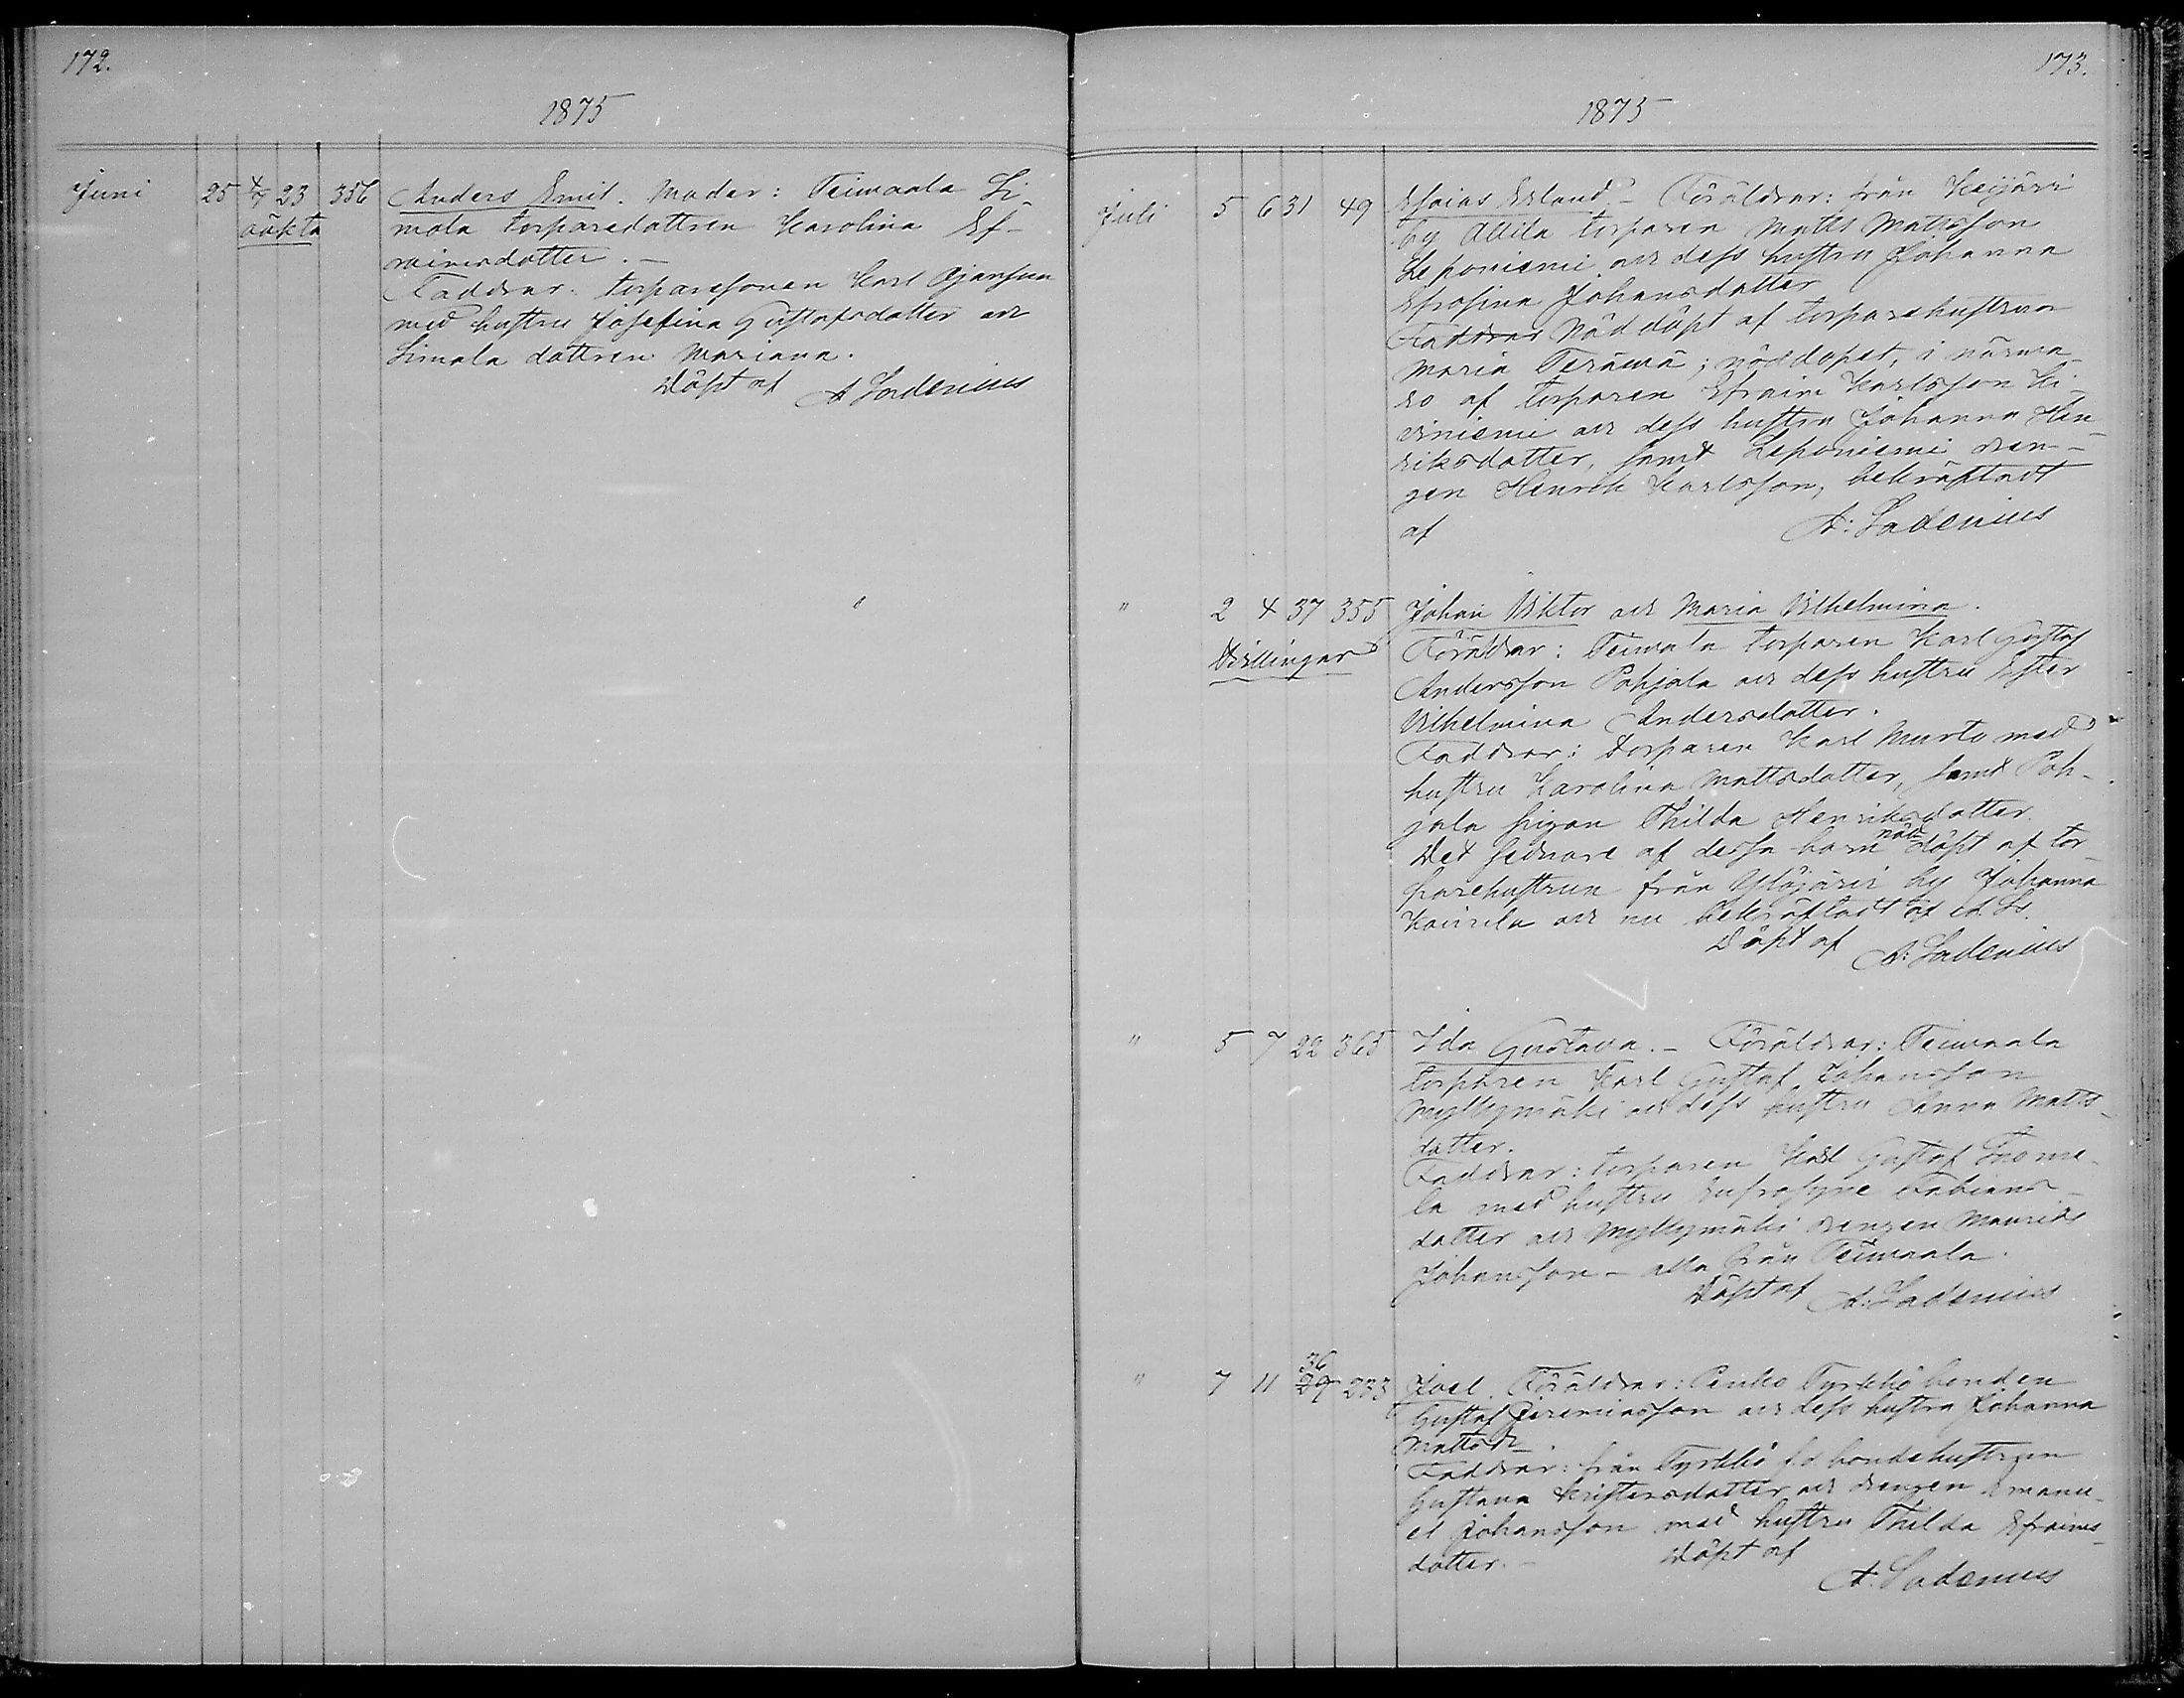 172.
1875
Juni 25 4/7 23 356 Anders Emil. Moder: Teimaala Si-
oäkta
mola torparedottren Karolina Ef-
raimsdotter. —
Faddrar: torparesonen Karl Ojansuu
med hustru Josefina Gustafsdotter och
Simola dottren Mariana.
Döpt af A Ladenius
173.
1875
Juli 5 6 31 49 Esaias Erland. — Föräldrar: från Keijärvi
by Attila torparen Matts Mattsson
Leponiemi och dess hustru Johanna
Efrosina Johansdotter
Faddrar Nöddöpt af torparehustrun
Maria Terämä; nöddopet, i närva-
ro af torparen Efraim Karlsson Hi-
viniemi och dess hustru Johanna Hen-
riksdotter, samt Leponiemi dren-
gen Henrik Karlsson, bekräftadt
af A: Ladenius
" 2 4 37 355 Johan Viktor och Maria Vilhelmina.
Tvillingar
Föräldrar: Teimala torparen Karl Gustaf
Andersson Pohjala och dess hustru Ester
Vilhelmina Andersdotter.
Faddrar: torparen Karl Murto med
hustru Karolina Mattsdotter, samt Poh-
jala pigan Thilda Henriksdotter.
Det sednare af dessa barn nöddöpt af tor-
parehustrun från Ylöjärvi by Johanna
Kaurila och nu bekräftadt af
Döpt af A: Ladenius
" 5 7 22 365 Ida Gustava. — Föräldrar: Teimaala
torparen Karl Gustaf Johansson
Myllymäki och dess hustru Anna Matts-
dotter.
Faddrar: torparen Karl Gustaf Tuome-
la med hustru Eufrosyne Fabians-
dotter och Myllymäki drengen Maurits
Johansson — alla från Teimaala.
Döpt af A: Ladenius
36
" 7 11 29 233 Joel. Föräldrar: Penko Tyrkkö bonden
Gustaf Jeremiasson och dess hustru Johanna
Mattsdr.
Faddrar: från Tyrkkö f.d. bondehustrun
Gustava Kristersdotter och drengen Emanu-
el Johansson med hustru Thilda Efraims-
dotter. — Döpt af
A. Ladenius